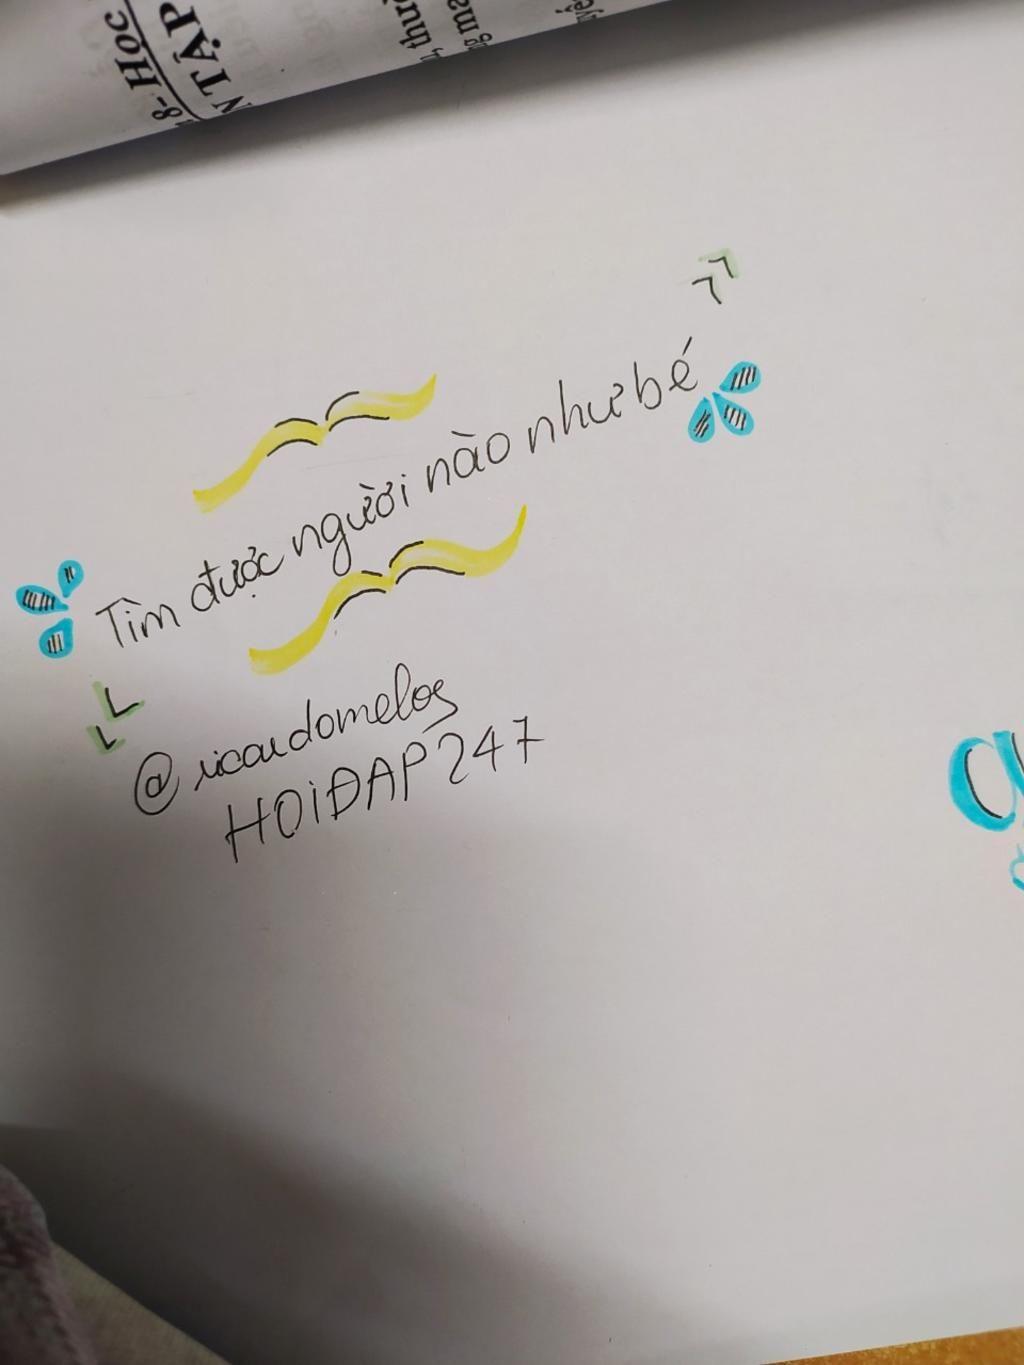 8- Học
N TẬP
, thuố
g ma
Tìm được người nào như bé
@ricardomelos
HOIĐAP247